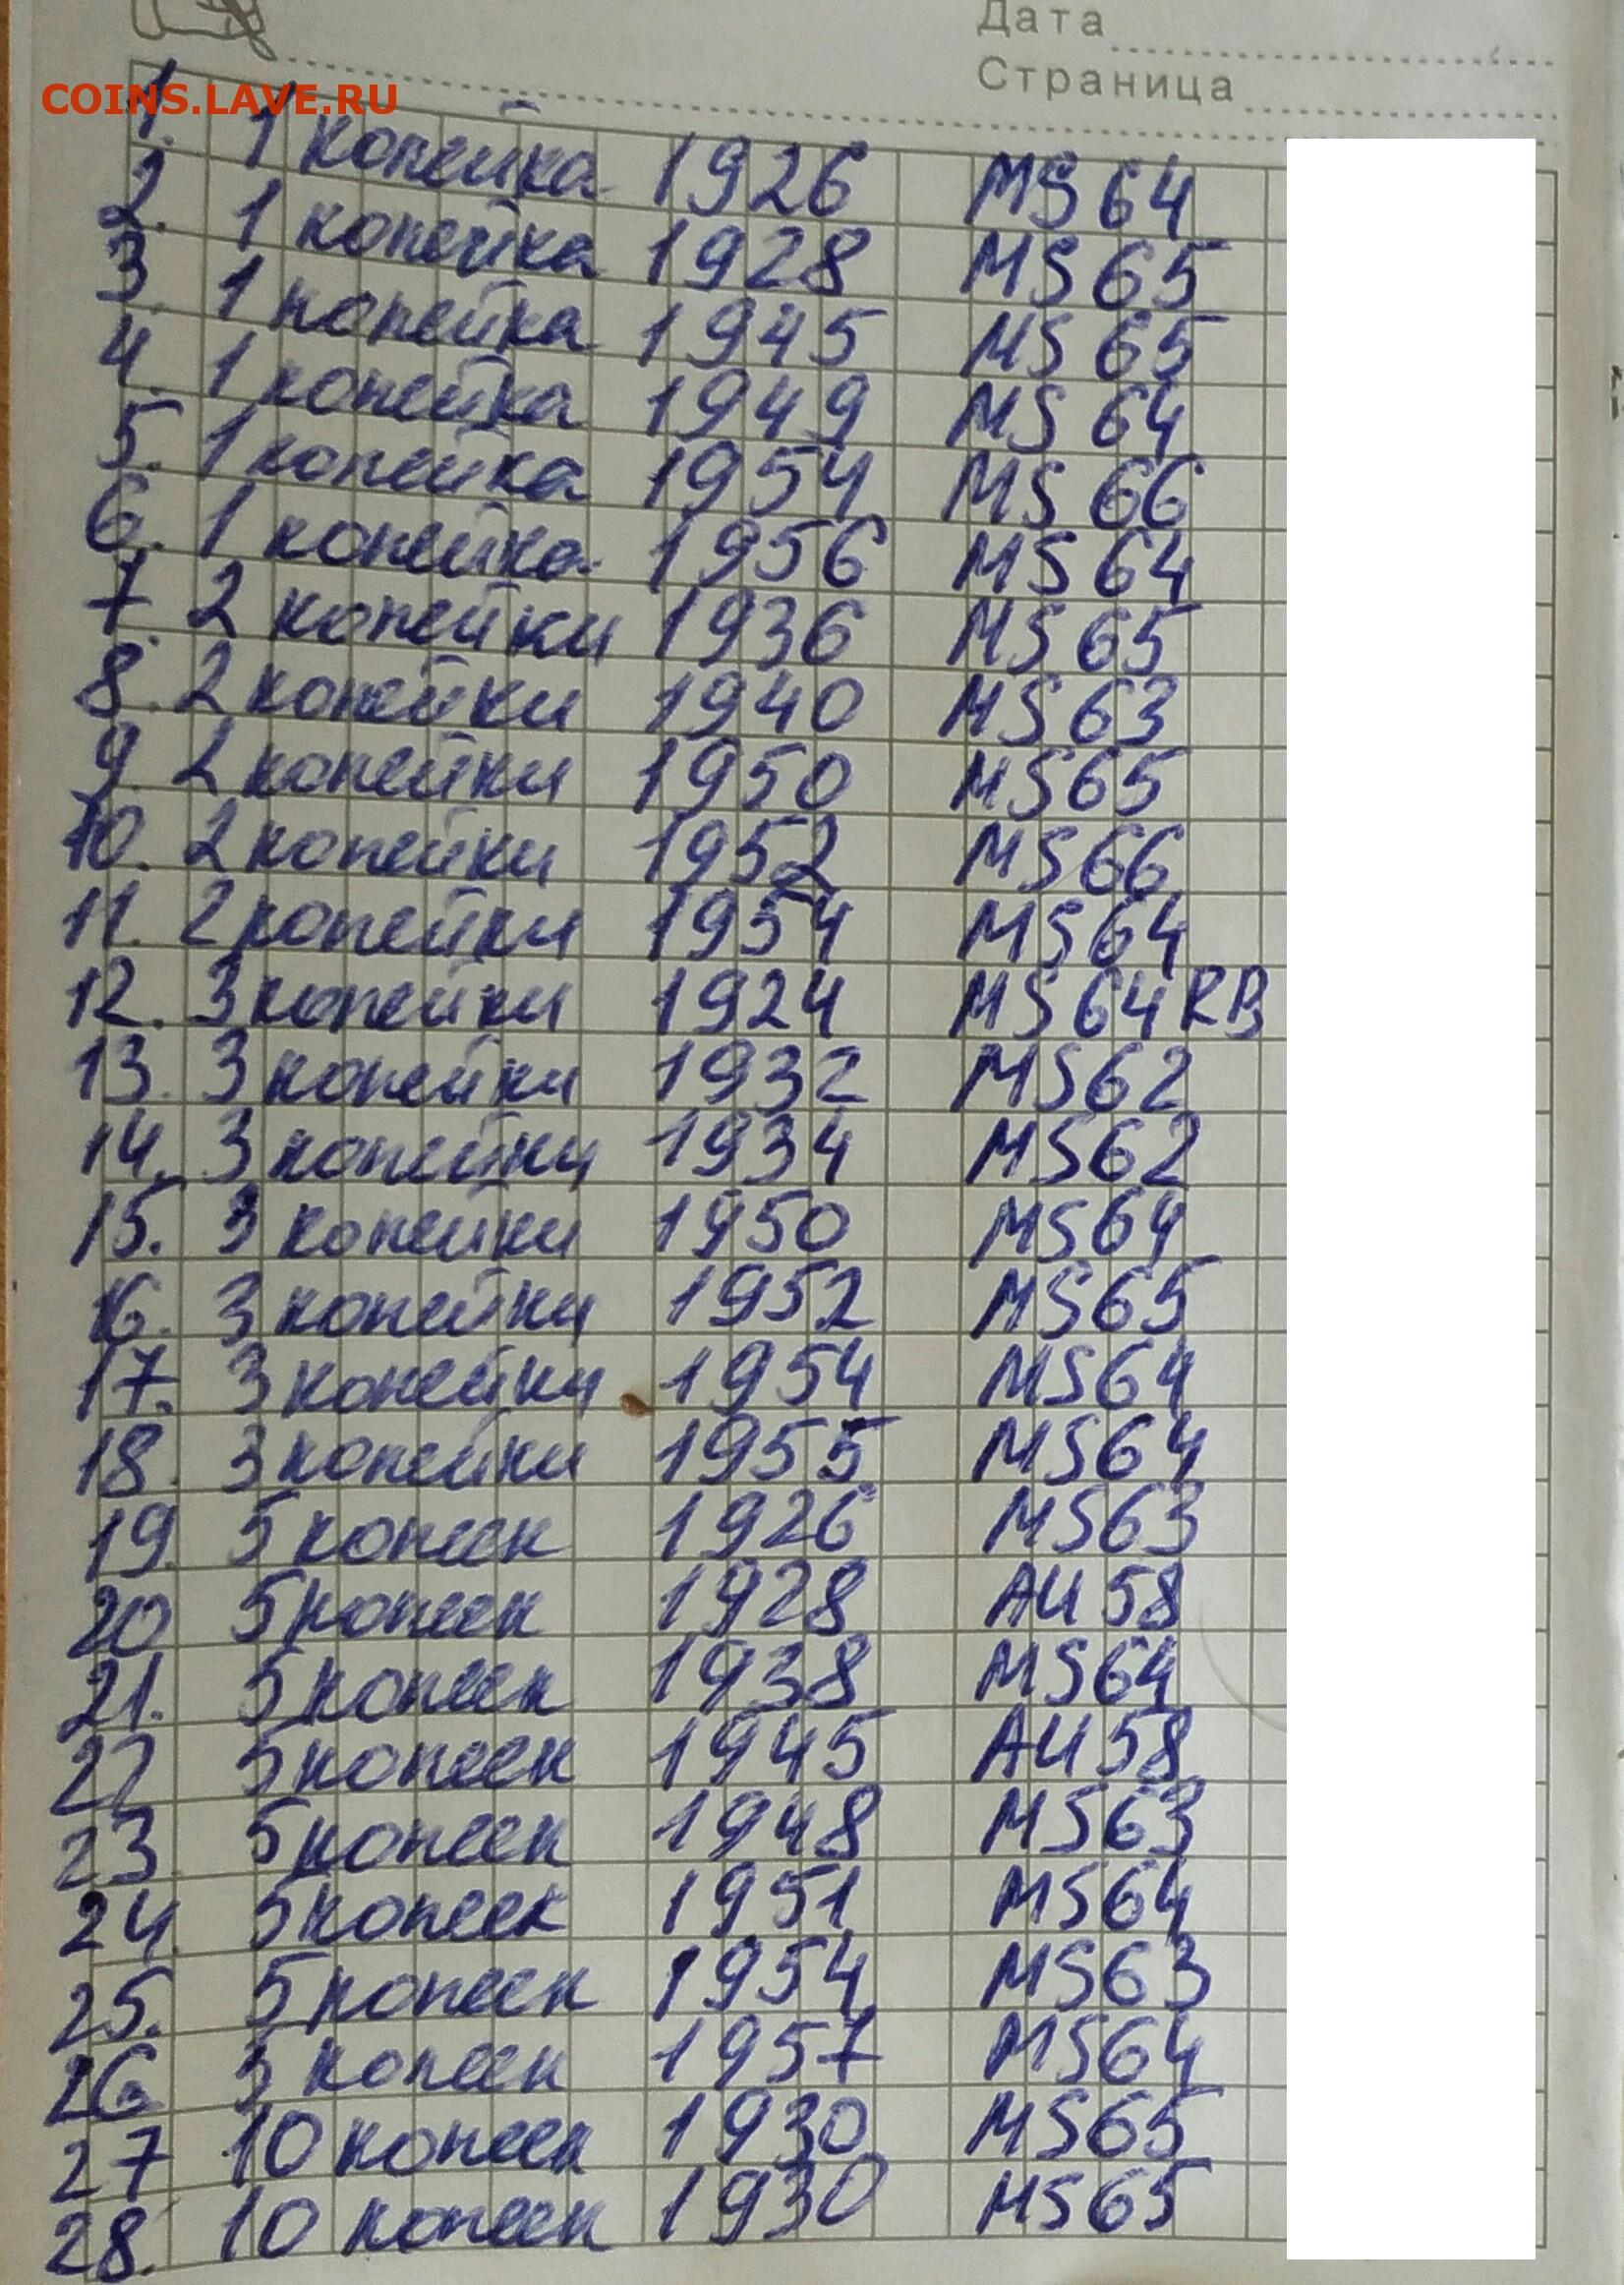 Дата
Страница
COINS.LAVE.RU
1. 1 копейка 1926 MS 64
2. 1 копейка 1928 MS 65
3. 1 копейка 1945 MS 65
4. 1 копейка 1949 MS 64
5. 1 копейка 1954 MS 66
6. 1 копейка 1956 MS 64
7. 2 копейки 1936 MS 65
8. 2 копейки 1940 MS 63
9. 2 копейки 1950 MS 65
10. 2 копейки 1952 MS 66
11. 2 копейки 1954 MS 64
12. 3 копейки 1924 MS 64 RB
13. 3 копейки 1932 MS 62
14. 3 копейки 1934 MS 62
15. 3 копейки 1950 MS 64
16. 3 копейки 1952 MS 65
17. 3 копейки 1954 MS 64
18. 3 копейки 1955 MS 64
19. 5 копеек 1926 MS 63
20 5 копеек 1928 AU 58
21. 5 копеек 1938 MS 64
22 5 копеек 1945 AU 58
23 5 копеек 1948 MS 63
24. 5 копеек 1951 MS 64
25. 5 копеек 1954 MS 63
26. 5 копеек 1957 MS 64
27 10 копеек 1930 MS 65
28. 10 копеек 1930 MS 65